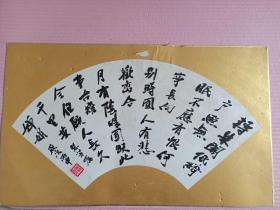 轉朱閣低綺
户照無
眠不應有恨何
事長向
别時圓人有悲
歡離合
月有陰晴圓缺此
事古難
全但願人長久
千里共
嬋娟